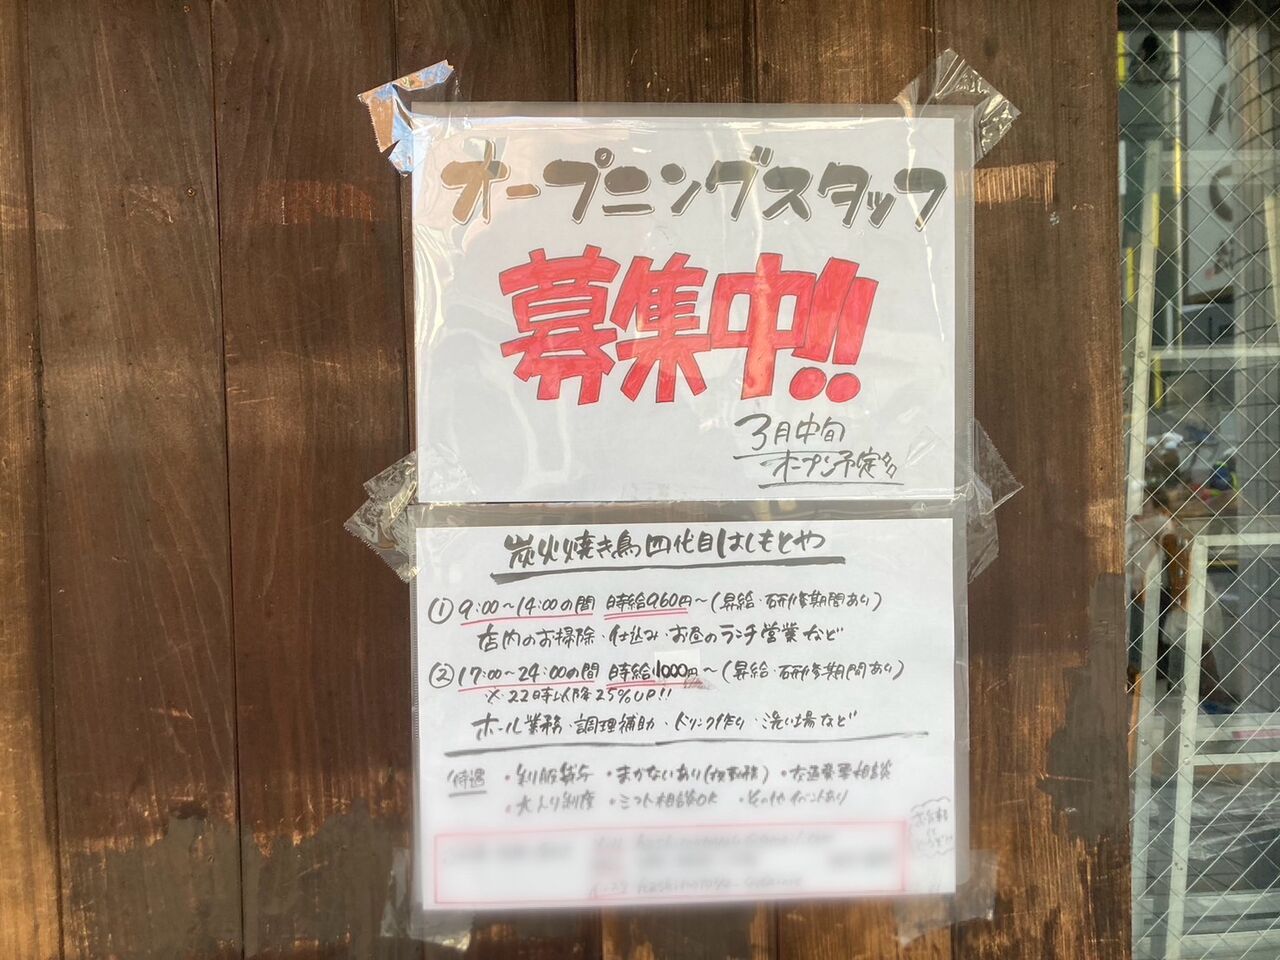 オープニングスタッフ
募集中!!
3月中旬
オープン予定
炭火焼き鳥 四代目はしもとや
① 9:00〜14:00の間 時給960円〜(昇給・研修期間あり)
店内のお掃除・仕込み・お昼のランチ営業など
② 17:00〜24:00の間 時給1000円〜(昇給・研修期間あり)
※22時以降25%UP!!
ホール業務・調理補助・ドリンク作り・洗い場など
待遇 ・制服貸与 ・まかないあり ・交通費要相談
・大入り制度 ・シフト相談OK ・その他イベントあり
お気軽に
どうぞ